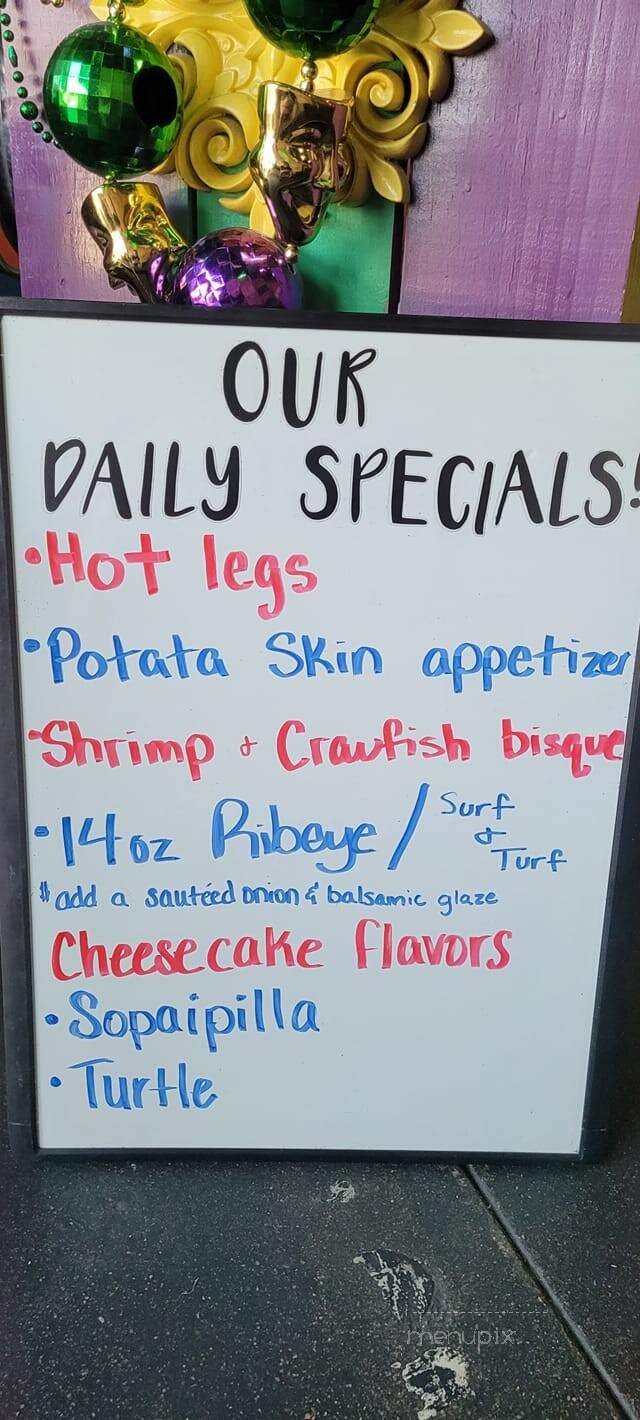 OUR
DAILY SPECIALS!
•Hot legs
•Potata Skin appetizer
•Shrimp & Crawfish bisque
•14oz Ribeye / Surf & Turf
*add a sautéed onion & balsamic glaze
Cheesecake flavors
•Sopaipilla
•Turtle
menupix